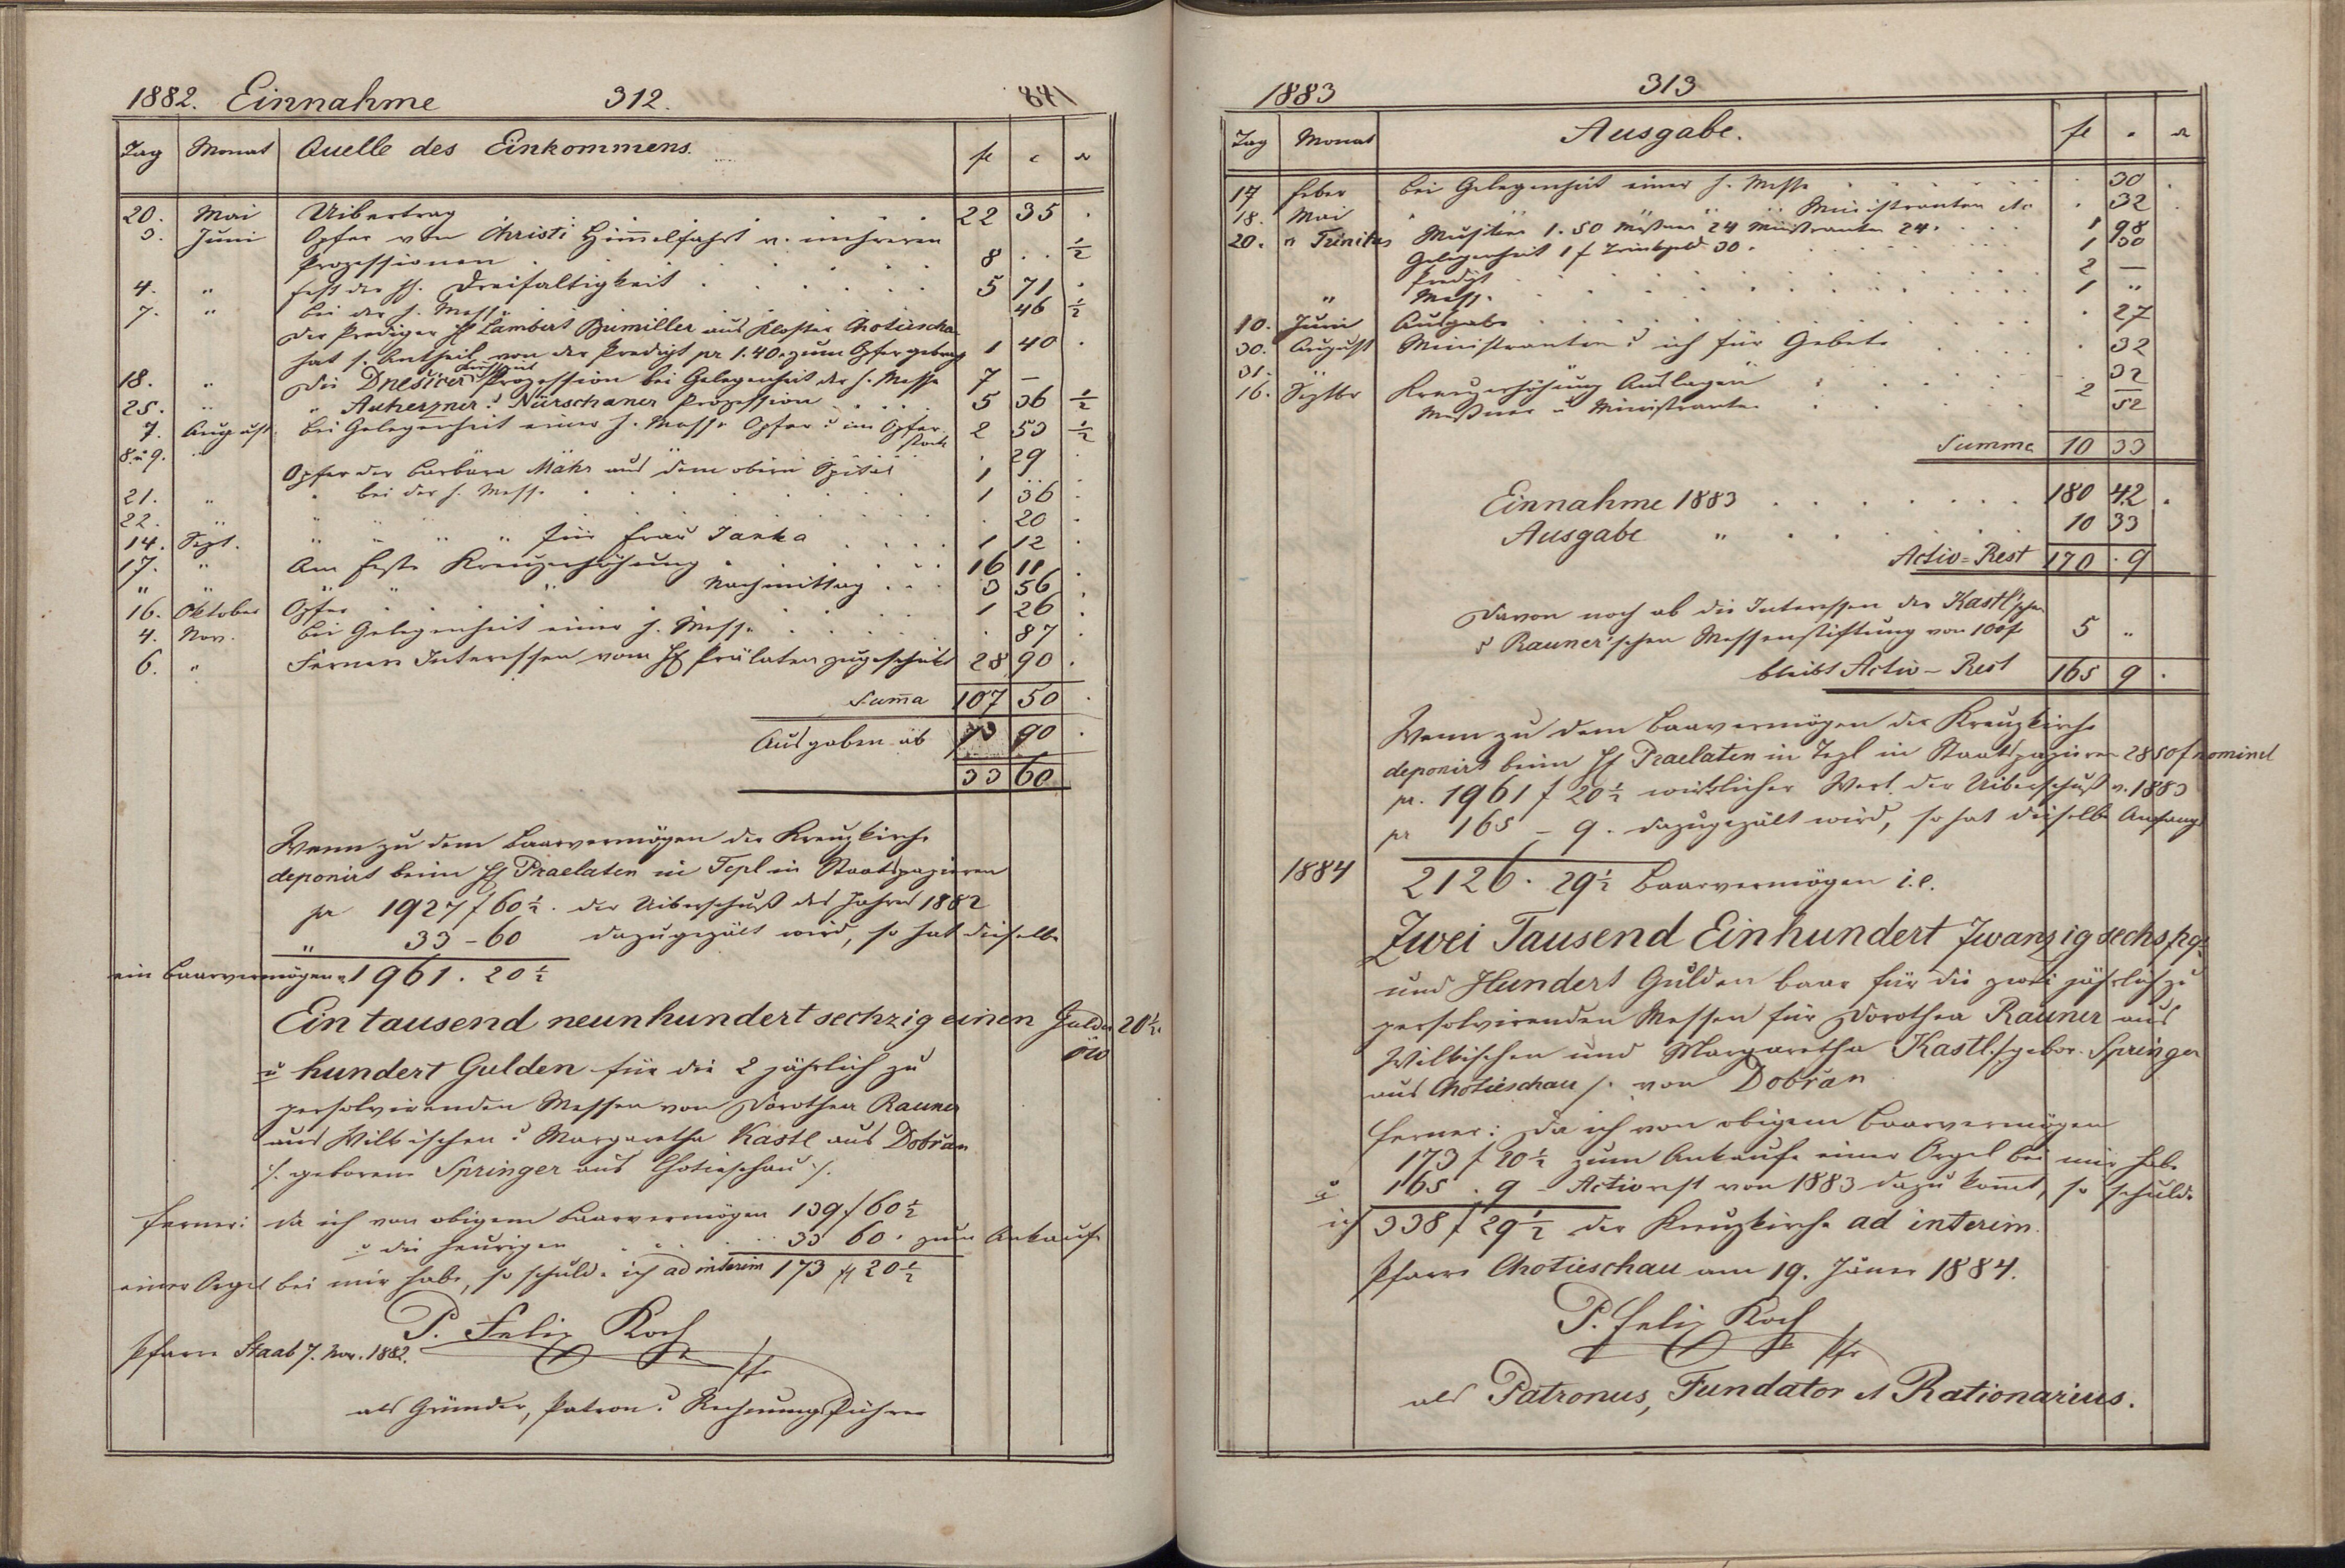 1882. Einnahme 312.
Tag Monat Quelle des Einkommens. fl c
20. Mai Uibertrag 22 35 .
3. Juni Opfer von Christi Him̄elfahrt u. mehreren
Prozessionen 8 . . ½
4. " Fest der hh. Dreifaltigkeit 5 71 .
7. " bei der h. Messe 46 ½
Der Prediger H Lambert Bumiller aus Kloster Chotieschau
hat s. Antheil von der Predigt pr 1.40. zum Opfer gebracht 1 40 .
18. " Die Dnešicer Prozession bei Gelegenheit der h. Messe 7 —
25. " " Auherzner u Nürschaner Prozession 5 36 ½
7. August. bei Gelegenheit einer h. Messe Opfer u im Opfer- 2 53 ½
stock
8. u 9. " . 29 .
Opfer der Barbara Mähr aus dem obern Spital 1 .. .
21. " " bei der h. Messe 1 36 .
22. " " " " . 20 .
14. Sept. " " " " für Frau Janka 1 12 .
17. " Am Feste Kreuzerhöhung 16 11 .
" " " " Nachmittag 3 56 .
16. Oktober Opfer 1 26 .
4. Nov. bei Gelegenheit einer h. Messe . 87 .
6. " Ferner Interessen vom H Prälaten zugeschickt 28 90 .
Sum̄a 107 50 .
Ausgaben ab 73 90 .
33 60
Wenn zu dem Baarvermögen der Kreuzkirche
deponirt beim H Praelaten in Tepl in Staatspapieren
pr 1927 f 60 ½. der Uiberschuß des Jahres 1882
" 33 – 60 dazugezält wird, so hat dieselbe
ein Baarvermögen 1961. 20 ½
Ein tausend neunhundert sechzig einen Gulden 20 ½.
u hundert Gulden für die 2 jährlich zu öW
persolvirenden Messen von Dorothea Rauner
aus Wilkischen u Margaretha Kastl aus Dobřan
/. geborene Springer aus Chotieschau /.
ferner: da ich von obigem Baarvermögen 139 f 60 ½
u die heurigen 33 60. zum Ankaufe
einer Orgel bei mir habe, so schulde ich ad interim 173 fl 20 ½
P. Felix Koch
Pfarre Staab 7. Nov. 1882. Pfr
als Gründer, Patron u Rechnungsführer
1883 313
Tag Monat Ausgabe. fl .
17 Feber bei Gelegenheit einer h. Messe . 30 .
18. Mai " " " " Ministranten etc . 32 .
20. " Trinitas Musiker 1.50 Meßner 24 Ministranten 24. 1 98
Gelegenheit 1 f Trinkgeld 30. 1 30
Predigt 2 —
" Messe. 1 "
10. Juni Ausgabe . 27
30. August Ministranten u ich für Gebete . 32
31. " . 32
16. Septbr Kreuzerhöhung Auslagen 2 —
Meßner u Ministranten 52
Summe 10 33
Einnahme 1883 180 42 .
Ausgabe " 10 33
Activ=Rest 170 . 9
Davon noch ab die Interessen der Kastl'schen
u Rauner'schen Messenstiftung von 100 f 5 "
bleibt Activ – Rest 165 9 .
Wenn zu dem Baarvermögen der Kreuzkirche
deponirt beim H Praelaten in Tepl in Staatspapieren 2850 f nominel
pr. 1961 f 20 ½ wirklicher Wert der Uiberschuß v. 1883
pr 165 – 9. dazugezält wird, so hat dieselbe Anfangs
1884 2126. 29 ½ Baarvermögen i.e.
Zwei Tausend Einhundert Zwanzig sechs
und Hundert Gulden baar für die zwei jährlich zu
persolvirenden Messen für Dorothea Rauner aus
Wilkischen und Margaretha Kastl /. gebor. Springer
aus Chotieschau /. von Dobřan
ferner: Da ich von obigem Baarvermögen
173 f 20 ½ zum Ankaufe einer Orgel bei mir habe
u 165 . 9 – Activrest von 1883 dazu kom̄t, so schulde
ich 338 f 29 ½ der Kreuzkirche ad interim.
Pfarre Chotieschau am 19. Jäner 1884.
P. Felix Koch
Pfr
als Patronus, Fundator et Rationarius.